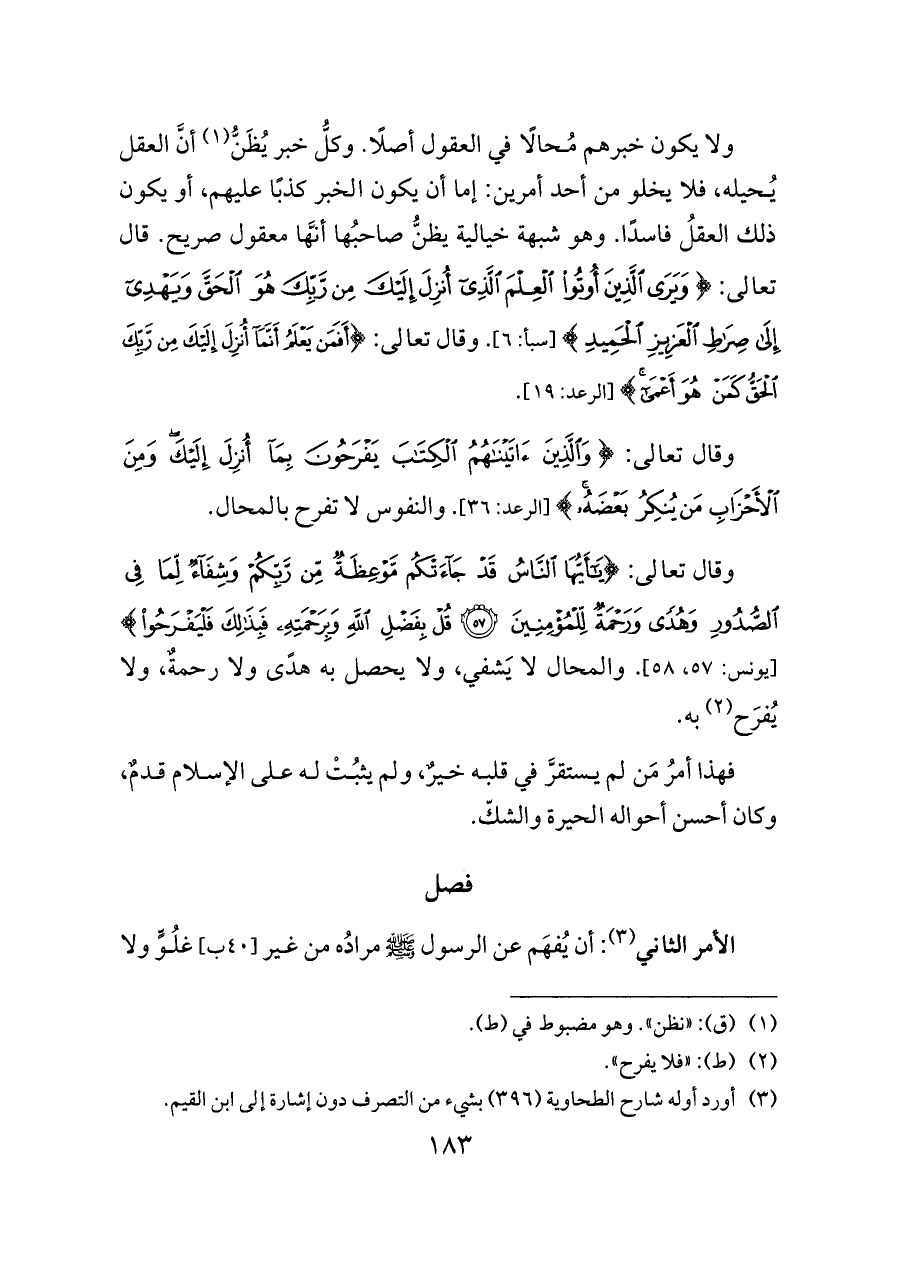 ولا يكون خبرهم مُحالًا في العقول أصلًا. وكلُّ خبر يُظَنُّ(١) أنَّ العقل
يُحيله، فلا يخلو من أحد أمرين: إما أن يكون الخبر كذبًا عليهم، أو يكون
ذلك العقلُ فاسدًا. وهو شبهة خيالية يظنُّ صاحبُها أنَّها معقول صريح. قال
تعالى: ﴿ وَيَرَى ٱلَّذِينَ أُوتُوا۟ ٱلْعِلْمَ ٱلَّذِىٓ أُنزِلَ إِلَيْكَ مِن رَّبِّكَ هُوَ ٱلْحَقَّ وَيَهْدِىٓ
إِلَىٰ صِرَٰطِ ٱلْعَزِيزِ ٱلْحَمِيدِ ﴾ [سبأ: ٦]. وقال تعالى: ﴿أَفَمَن يَعْلَمُ أَنَّمَآ أُنزِلَ إِلَيْكَ مِن رَّبِّكَ
ٱلْحَقُّ كَمَنْ هُوَ أَعْمَىٰٓ ۚ﴾ [الرعد: ١٩].
وقال تعالى: ﴿ وَٱلَّذِينَ ءَاتَيْنَٰهُمُ ٱلْكِتَٰبَ يَفْرَحُونَ بِمَآ أُنزِلَ إِلَيْكَ ۖ وَمِنَ
ٱلْأَحْزَابِ مَن يُنكِرُ بَعْضَهُۥ ۚ ﴾ [الرعد: ٣٦]. والنفوس لا تفرح بالمحال.
وقال تعالى: ﴿يَٰٓأَيُّهَا ٱلنَّاسُ قَدْ جَآءَتْكُم مَّوْعِظَةٌ مِّن رَّبِّكُمْ وَشِفَآءٌ لِّمَا فِى
ٱلصُّدُورِ وَهُدًى وَرَحْمَةٌ لِّلْمُؤْمِنِينَ ۝٥٧ قُلْ بِفَضْلِ ٱللَّهِ وَبِرَحْمَتِهِۦ فَبِذَٰلِكَ فَلْيَفْرَحُوا۟ ﴾
[يونس: ٥٧، ٥٨]. والمحال لا يَشفي، ولا يحصل به هدًى ولا رحمةٌ، ولا
يُفرَح(٢) به.
فهذا أمرُ مَن لم يستقرَّ في قلبه خيرٌ، ولم يثبُتْ له على الإسلام قدمٌ،
وكان أحسن أحواله الحيرة والشكّ.
فصل
الأمر الثاني(٣): أن يُفهَم عن الرسول ﷺ مرادُه من غير [٤٠ب] غلُوٍّ ولا
(١) (ق): «نظن». وهو مضبوط في (ط).
(٢) (ط): «فلا يفرح».
(٣) أورد أوله شارح الطحاوية (٣٩٦) بشيء من التصرف دون إشارة إلى ابن القيم.
١٨٣